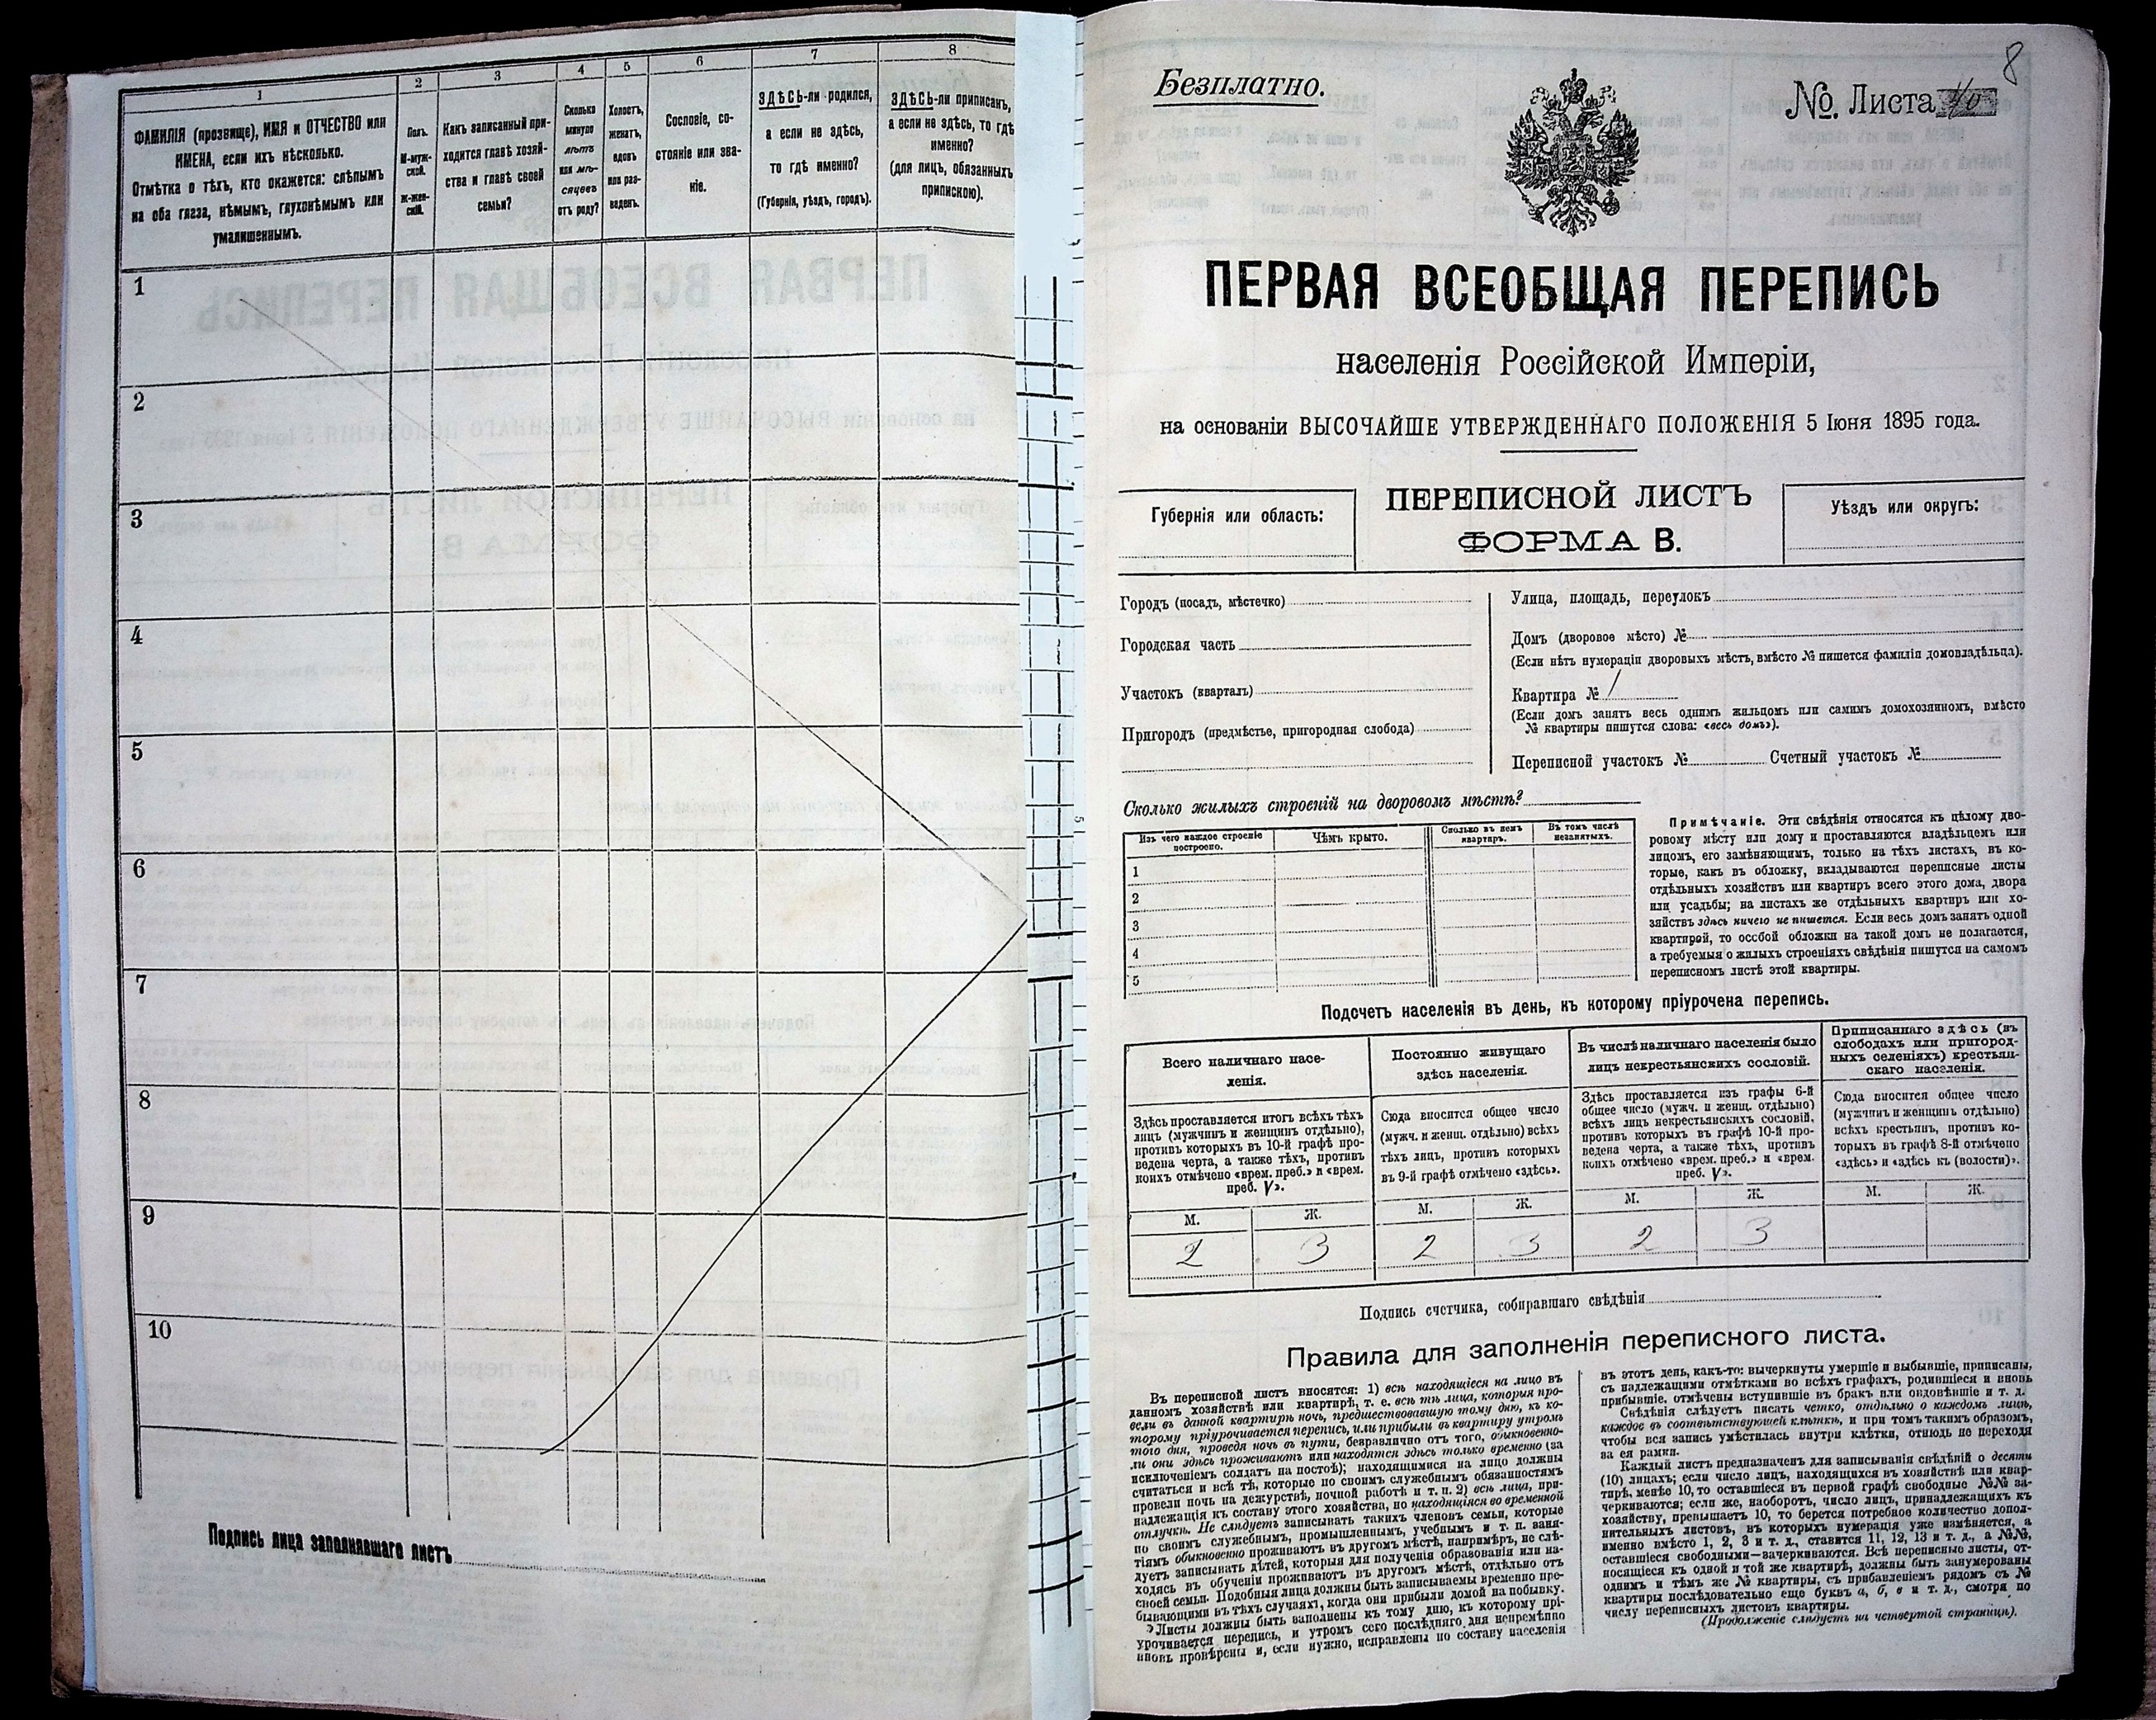 1
2
3
4
5
6
7
8
ФАМИЛІЯ (прозвище), ИМЯ и ОТЧЕСТВО или
ИМЕНА, если ихъ нѣсколько.
Отмѣтка о тѣхъ, кто окажется: слѣпымъ
на оба глаза, нѣмымъ, глухонѣмымъ или
умалишеннымъ.
Полъ.
М-муж-
ской.
Ж-жен-
скій.
Какъ записанный при-
ходится главѣ хозяй-
ства и главѣ своей
семьи?
Сколько
минуло
лѣтъ
или мѣ-
сяцевъ
отъ роду?
Холостъ,
женатъ,
вдовъ
или раз-
веденъ.
Сословіе, со-
стояніе или зва-
ніе.
ЗДѢСЬ-ли родился,
а если не здѣсь,
то гдѣ именно?
(Губернія, уѣздъ, городъ).
ЗДѢСЬ-ли приписанъ,
а если не здѣсь, то гдѣ
именно?
(для лицъ, обязанныхъ
припискою).
1
2
3
4
5
6
7
8
9
10
Подпись лица заполнявшаго листъ
8
Безплатно.
№ Листа 40
ПЕРВАЯ ВСЕОБЩАЯ ПЕРЕПИСЬ
населенія Россійской Имперіи,
на основаніи ВЫСОЧАЙШЕ УТВЕРЖДЕННАГО ПОЛОЖЕНІЯ 5 Іюня 1895 года.
Губернія или область:
ПЕРЕПИСНОЙ ЛИСТЪ
ФОРМА В.
Уѣздъ или округъ:
Городъ (посадъ, мѣстечко)
Городская часть
Участокъ (кварталъ)
Пригородъ (предмѣстье, пригородная слобода)
Улица, площадь, переулокъ
Домъ (дворовое мѣсто) №
(Если нѣтъ нумераціи дворовыхъ мѣстъ, вмѣсто № пишется фамилія домовладѣльца).
Квартира № 1
(Если домъ занятъ весь однимъ жильцомъ или самимъ домохозяиномъ, вмѣсто
№ квартиры пишутся слова: «весь домъ»).
Переписной участокъ № Счетный участокъ №
Сколько жилыхъ строеній на дворовомъ мѣстѣ?
Изъ чего каждое строеніе
построено.
Чѣмъ крыто.
Сколько въ немъ
квартиръ.
Въ томъ числѣ
незанятыхъ.
1
2
3
4
5
Примѣчаніе. Эти свѣдѣнія относятся къ цѣлому дво-
ровому мѣсту или дому и проставляются владѣльцемъ или
лицомъ, его замѣняющимъ, только на тѣхъ листахъ, въ ко-
торые, какъ въ обложку, вкладываются переписные листы
отдѣльныхъ хозяйствъ или квартиръ всего этого дома, двора
или усадьбы; на листахъ же отдѣльныхъ квартиръ или хо-
зяйствъ здѣсь ничего не пишется. Если весь домъ занятъ одной
квартирой, то особой обложки на такой домъ не полагается,
а требуемыя о жилыхъ строеніяхъ свѣдѣнія пишутся на самомъ
переписномъ листѣ этой квартиры.
Подсчетъ населенія въ день, къ которому пріурочена перепись.
Всего наличнаго насе-
ленія.
Постоянно живущаго
здѣсь населенія.
Въ числѣ наличнаго населенія было
лицъ некрестьянскихъ сословій.
Приписаннаго здѣсь (въ
слободахъ или пригород-
ныхъ селеніяхъ) крестьян-
скаго населенія.
Здѣсь проставляется итогъ всѣхъ тѣхъ
лицъ (мужчинъ и женщинъ отдѣльно),
противъ которыхъ въ 10-й графѣ про-
ведена черта, а также тѣхъ, противъ
коихъ отмѣчено «врем. преб.» и «врем.
преб. V».
Сюда вносится общее число
(мужч. и женщ. отдѣльно) всѣхъ
тѣхъ лицъ, противъ которыхъ
въ 9-й графѣ отмѣчено «здѣсь».
Здѣсь проставляется изъ графы 6-й
общее число (мужч. и женщ. отдѣльно)
всѣхъ лицъ некрестьянскихъ сословій,
противъ которыхъ въ графѣ 10-й про-
ведена черта, а также тѣхъ, противъ
коихъ отмѣчено «врем. преб.» и «врем.
преб. V».
Сюда вносится общее число
(мужчинъ и женщинъ отдѣльно)
всѣхъ крестьянъ, противъ ко-
торыхъ въ графѣ 8-й отмѣчено
«здѣсь» и «здѣсь къ (волости)».
М. Ж. М. Ж. М. Ж. М. Ж.
2 3 2 3 2 3
Подпись счетчика, собиравшаго свѣдѣнія
Правила для заполненія переписного листа.
Въ переписной листъ вносятся: 1) всѣ находящіеся на лицо въ
данномъ хозяйствѣ или квартирѣ, т. е. всѣ тѣ лица, которыя про-
вели въ данной квартирѣ ночь, предшествовавшую тому дню, къ ко-
торому пріурочивается перепись, или прибыли въ квартиру утромъ
того дня, проведя ночь въ пути, безразлично отъ того, обыкновенно-
ли они здѣсь проживаютъ или находятся здѣсь только временно (за
исключеніемъ солдатъ на постоѣ); находящимися на лицо должны
считаться и всѣ тѣ, которые по своимъ служебнымъ обязанностямъ
провели ночь на дежурствѣ, ночной работѣ и т. п. 2) всѣ лица, при-
надлежащія къ составу этого хозяйства, но находящіяся во временной
отлучкѣ. Не слѣдуетъ записывать такихъ членовъ семьи, которые
по своимъ служебнымъ, промышленнымъ, учебнымъ и т. п. заня-
тіямъ обыкновенно проживаютъ въ другомъ мѣстѣ, напримѣръ, не слѣ-
дуетъ записывать дѣтей, которыя для полученія образованія или на-
ходясь въ обученіи проживаютъ въ другомъ мѣстѣ, отдѣльно отъ
своей семьи. Подобныя лица должны быть записываемы временно пре-
бывающими въ тѣхъ случаяхъ, когда они прибыли домой на побывку.
Листы должны быть заполнены къ тому дню, къ которому прі-
урочивается перепись, и утромъ сего послѣдняго дня непремѣнно
вновь провѣрены и, если нужно, исправлены по составу населенія
въ этотъ день, какъ-то: вычеркнуты умершіе и выбывшіе, приписаны,
съ надлежащими отмѣтками во всѣхъ графахъ, родившіеся и вновь
прибывшіе, отмѣчены вступившіе въ бракъ или овдовѣвшіе и т. д.
Свѣдѣнія слѣдуетъ писать четко, отдѣльно о каждомъ лицѣ,
каждое въ соотвѣтствующей клѣткѣ, и при томъ такимъ образомъ,
чтобы вся запись умѣстилась внутри клѣтки, отнюдь не переходя
за ея рамки.
Каждый листъ предназначенъ для записыванія свѣдѣній о десяти
(10) лицахъ; если число лицъ, находящихся въ хозяйствѣ или квар-
тирѣ, менѣе 10, то оставшіеся въ первой графѣ свободные №№ за-
черкиваются; если же, наоборотъ, число лицъ, принадлежащихъ къ
хозяйству, превышаетъ 10, то берется потребное количество допол-
нительныхъ листовъ, въ которыхъ нумерація уже измѣняется, а
именно вмѣсто 1, 2, 3 и т. д., ставится 11, 12, 13 и т. д., а №№,
оставшіеся свободными—зачеркиваются. Всѣ переписные листы, от-
носящіеся къ одной и той же квартирѣ, должны быть занумерованы
однимъ и тѣмъ же № квартиры, съ прибавленіемъ рядомъ съ №
квартиры послѣдовательно еще буквъ а, б, в и т. д., смотря по
числу переписныхъ листовъ квартиры.
(Продолженіе слѣдуетъ на четвертой страницѣ).